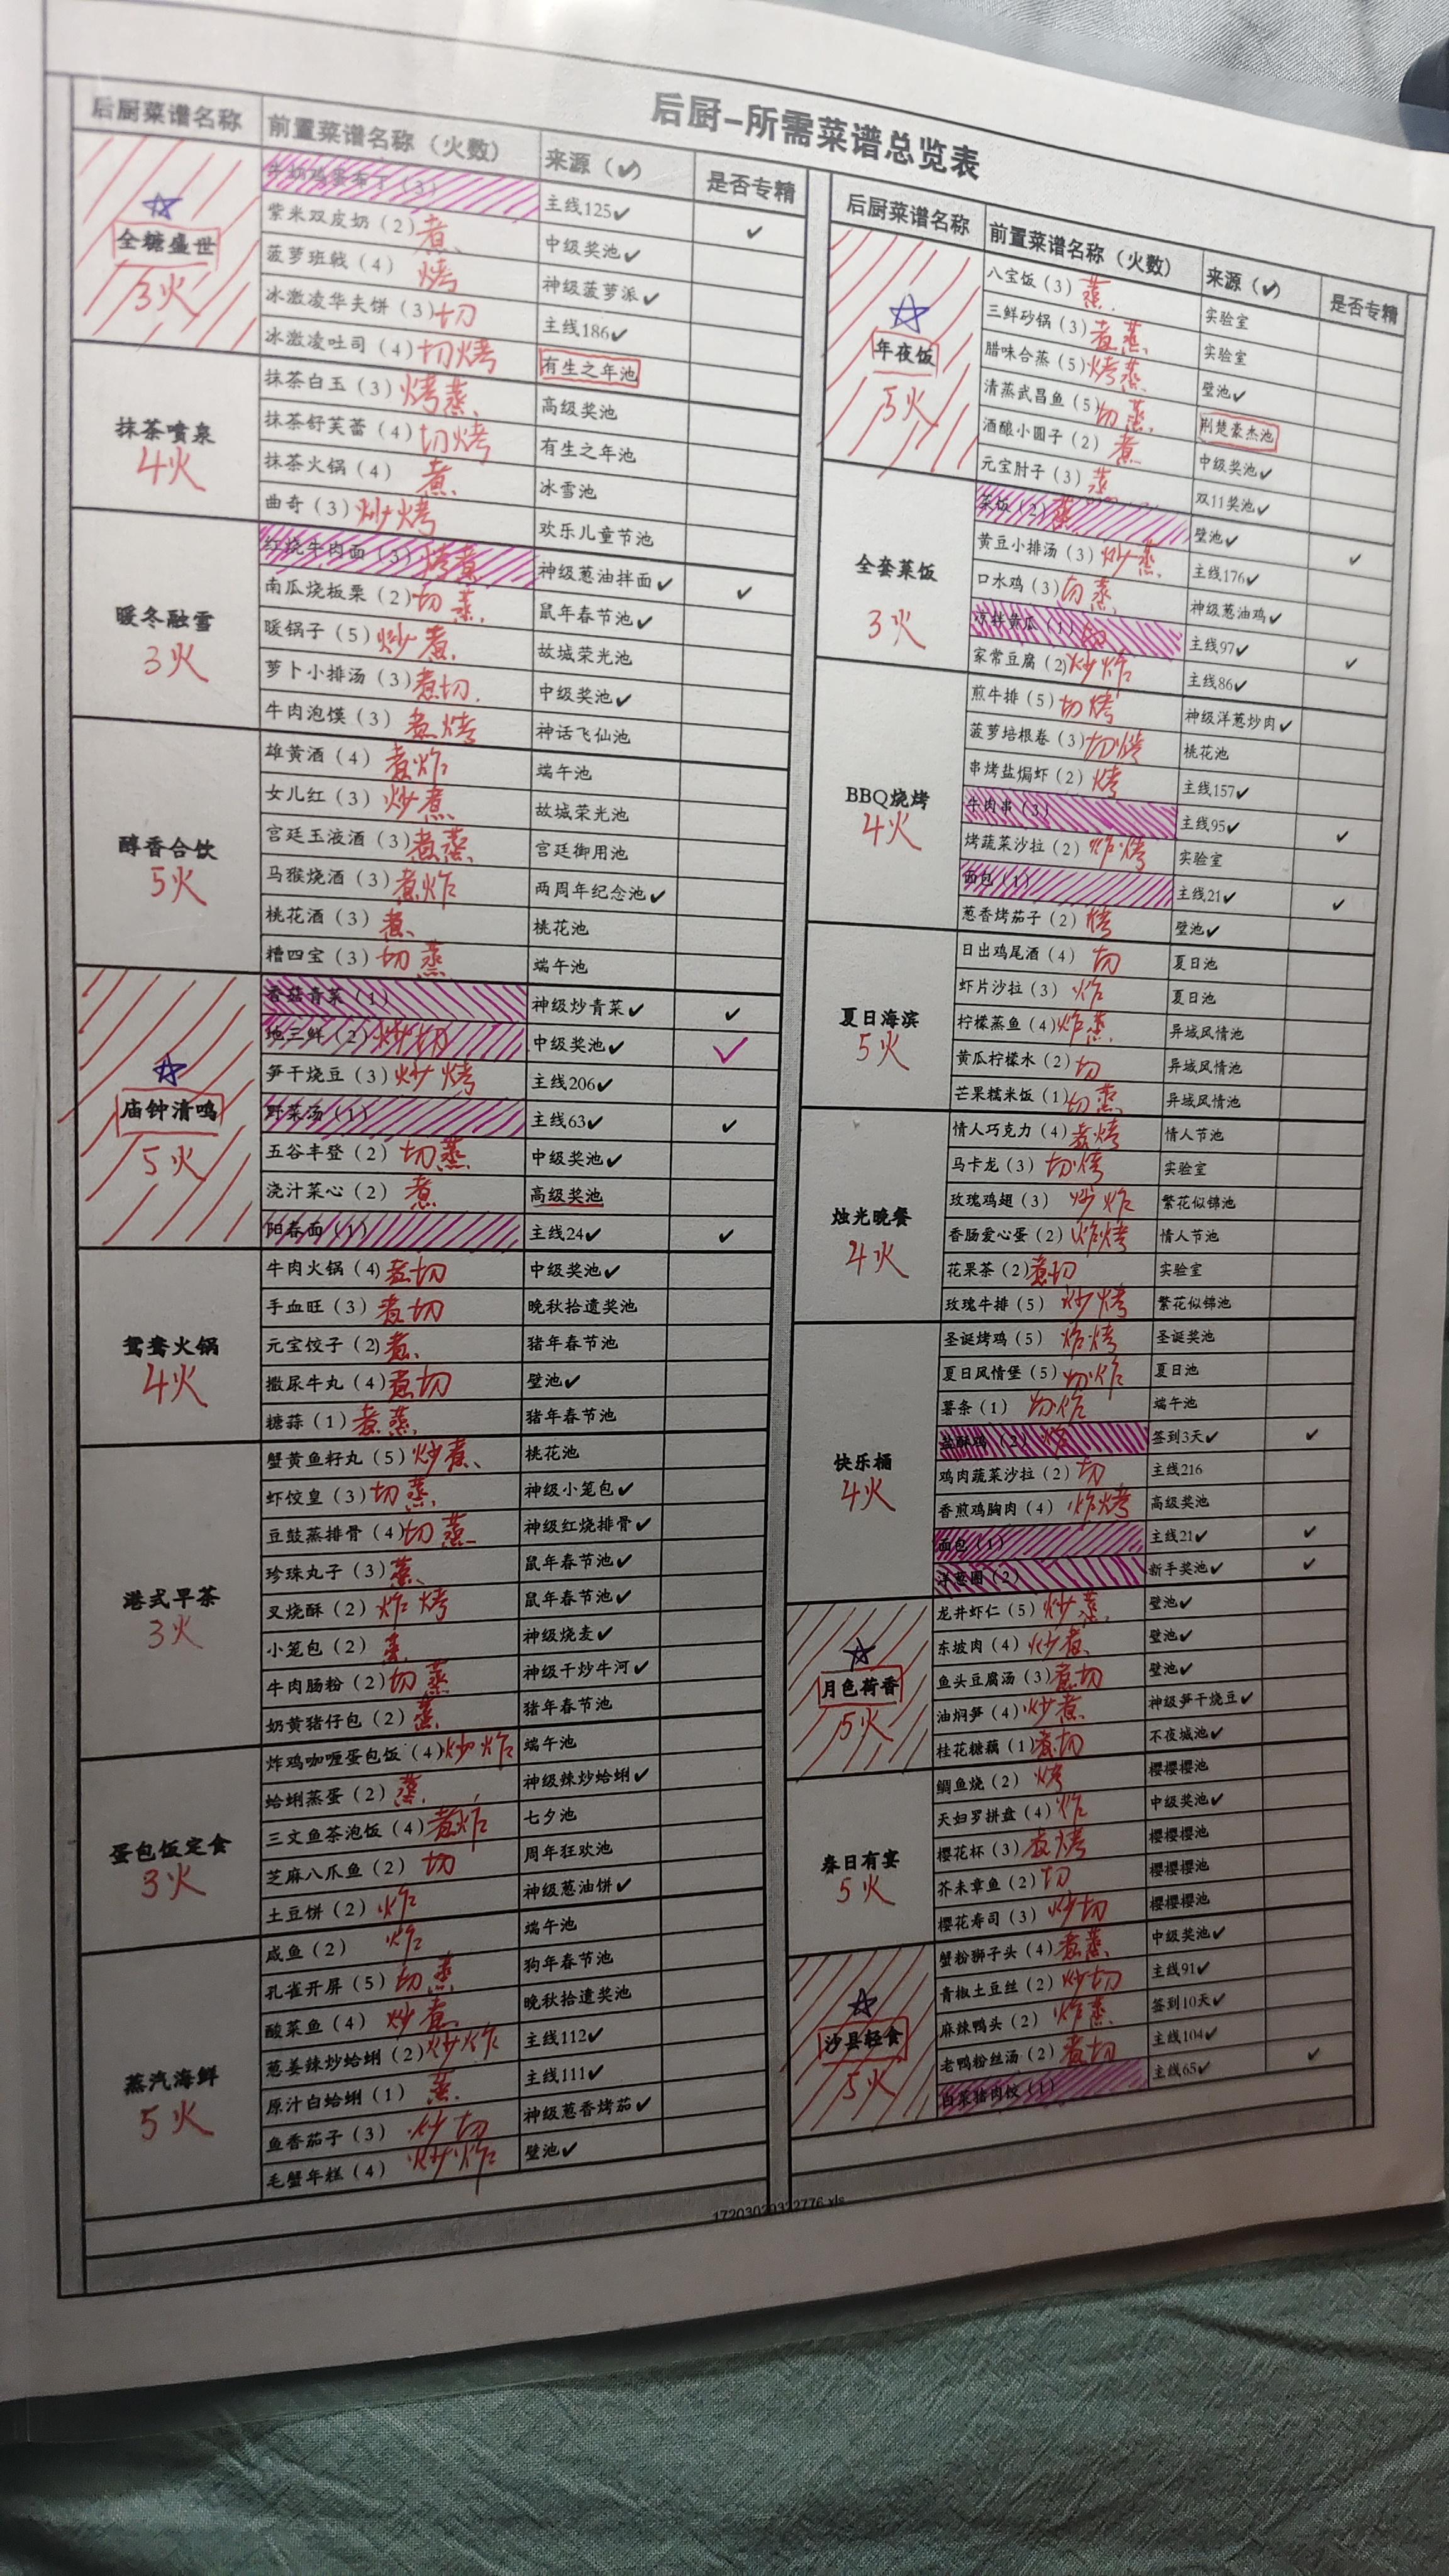 后厨-所需菜谱总览表
后厨菜谱名称 前置菜谱名称（火数） 来源（✓） 是否专精
☆ 全糖盛世 3火
牛奶鸡蛋布丁（3） 主线125✓ ✓
紫米双皮奶（2）煮 中级奖池✓
菠萝班戟（4） 烤 神级菠萝派✓
冰激凌华夫饼（3）切 主线186✓
冰激凌吐司（4）切烤 有生之年池
抹茶喷泉 4火
抹茶白玉（3）烤蒸 高级奖池
抹茶舒芙蕾（4）切烤 有生之年池
抹茶火锅（4） 煮 冰雪池
曲奇（3）炒烤 欢乐儿童节池
暖冬融雪 3火
红烧牛肉面（3）烤煮 神级葱油拌面✓ ✓
南瓜烧板栗（2）切蒸 鼠年春节池✓
暖锅子（5）炒煮 故城荣光池
萝卜小排汤（3）煮切 中级奖池✓
牛肉泡馍（3）煮烤 神话飞仙池
醇香合饮 5火
雄黄酒（4）煮炸 端午池
女儿红（3）炒煮 故城荣光池
宫廷玉液酒（3）煮蒸 宫廷御用池
马猴烧酒（3）煮炸 两周年纪念池✓
桃花酒（3）煮 桃花池
糟四宝（3）切蒸 端午池
☆ 庙钟清鸣 5火
香菇青菜（1） 神级炒青菜✓ ✓
地三鲜（2）炒切 中级奖池✓ ✓
笋干烧豆（3）炒烤 主线206✓
野菜汤（1） 主线63✓ ✓
五谷丰登（2）切蒸 中级奖池✓
浇汁菜心（2）煮 高级奖池
阳春面（1） 主线24✓ ✓
鸳鸯火锅 4火
牛肉火锅（4）煮切 中级奖池✓
手血旺（3）煮切 晚秋拾遗奖池
元宝饺子（2）煮 猪年春节池
撒尿牛丸（4）煮切 壁池✓
糖蒜（1）煮蒸 猪年春节池
港式早茶 3火
蟹黄鱼籽丸（5）炒煮 桃花池
虾饺皇（3）切蒸 神级小笼包✓
豆鼓蒸排骨（4）切蒸 神级红烧排骨✓
珍珠丸子（3）蒸 鼠年春节池✓
叉烧酥（2）炸烤 鼠年春节池✓
小笼包（2）蒸 神级烧麦✓
牛肉肠粉（2）切蒸 神级干炒牛河✓
奶黄猪仔包（2）蒸 猪年春节池
蛋包饭定食 3火
炸鸡咖喱蛋包饭（4）炒炸 端午池
蛤蜊蒸蛋（2）蒸 神级辣炒蛤蜊✓
三文鱼茶泡饭（4）煮炸 七夕池
芝麻八爪鱼（2）切 周年狂欢池
土豆饼（2）炸 神级葱油饼✓
蒸汽海鲜 5火
咸鱼（2） 炸 端午池
孔雀开屏（5）切蒸 狗年春节池
酸菜鱼（4）炒煮 晚秋拾遗奖池
葱姜辣炒蛤蜊（2）炒炸 主线112✓
原汁白蛤蜊（1）蒸 主线111✓
鱼香茄子（3）炒切 神级葱香烤茄✓
毛蟹年糕（4）炒炸 壁池✓
后厨菜谱名称 前置菜谱名称（火数） 来源（✓） 是否专精
☆ 年夜饭 5火
八宝饭（3）蒸 实验室
三鲜砂锅（3）煮蒸 实验室
腊味合蒸（5）烤蒸 壁池✓
清蒸武昌鱼（5）切蒸 荆楚豪杰池
酒酿小圆子（2）煮 中级奖池✓
元宝肘子（3）蒸 双11奖池✓
全套菜饭 3火
菜饭（2）蒸 壁池✓ ✓
黄豆小排汤（3）炒蒸 主线176✓
口水鸡（3）切蒸 神级葱油鸡✓
凉拌黄瓜（1）切 主线97✓ ✓
家常豆腐（2）炒炸 主线86✓
BBQ烧烤 4火
煎牛排（5）切烤 神级洋葱炒肉✓
菠萝培根卷（3）切烤 桃花池
串烤盐焗虾（2）烤 主线157✓
牛肉串（3） 主线95✓ ✓
烤蔬菜沙拉（2）炸烤 实验室
面包（1） 主线21✓ ✓
葱香烤茄子（2）烤 壁池✓
夏日海滨 5火
日出鸡尾酒（4）切 夏日池
虾片沙拉（3）炸 夏日池
柠檬蒸鱼（4）炸蒸 异域风情池
黄瓜柠檬水（2）切 异域风情池
芒果糯米饭（1）切蒸 异域风情池
烛光晚餐 4火
情人巧克力（4）煮烤 情人节池
马卡龙（3）切烤 实验室
玫瑰鸡翅（3）炒炸 繁花似锦池
香肠爱心蛋（2）炸烤 情人节池
花果茶（2）煮切 实验室
玫瑰牛排（5）炒烤 繁花似锦池
快乐桶 4火
圣诞烤鸡（5）炸烤 圣诞奖池
夏日风情堡（5）切炸 夏日池
薯条（1）切炸 端午池
盐酥鸡（2）炸 签到3天✓ ✓
鸡肉蔬菜沙拉（2）切 主线216
香煎鸡胸肉（4）炸烤 高级奖池
面包（1） 主线21✓ ✓
洋葱圈（2） 新手奖池✓ ✓
☆ 月色荷香 5火
龙井虾仁（5）炒蒸 壁池✓
东坡肉（4）炒煮 壁池✓
鱼头豆腐汤（3）煮切 壁池✓
油焖笋（4）炒煮 神级笋干烧豆✓
桂花糖藕（1）煮切 不夜城池✓
春日有宴 5火
鲷鱼烧（2）烤 樱樱樱池
天妇罗拼盘（4）炸 中级奖池✓
樱花杯（3）煮烤 樱樱樱池
芥末章鱼（2）切 樱樱樱池
樱花寿司（3）炒切 樱樱樱池
☆ 沙县轻食 5火
蟹粉狮子头（4）煮蒸 中级奖池✓
青椒土豆丝（2）炒切 主线91✓
麻辣鸭头（2）炸蒸 签到10天✓
老鸭粉丝汤（2）煮切 主线104✓
白菜猪肉饺（1） 主线65✓ ✓